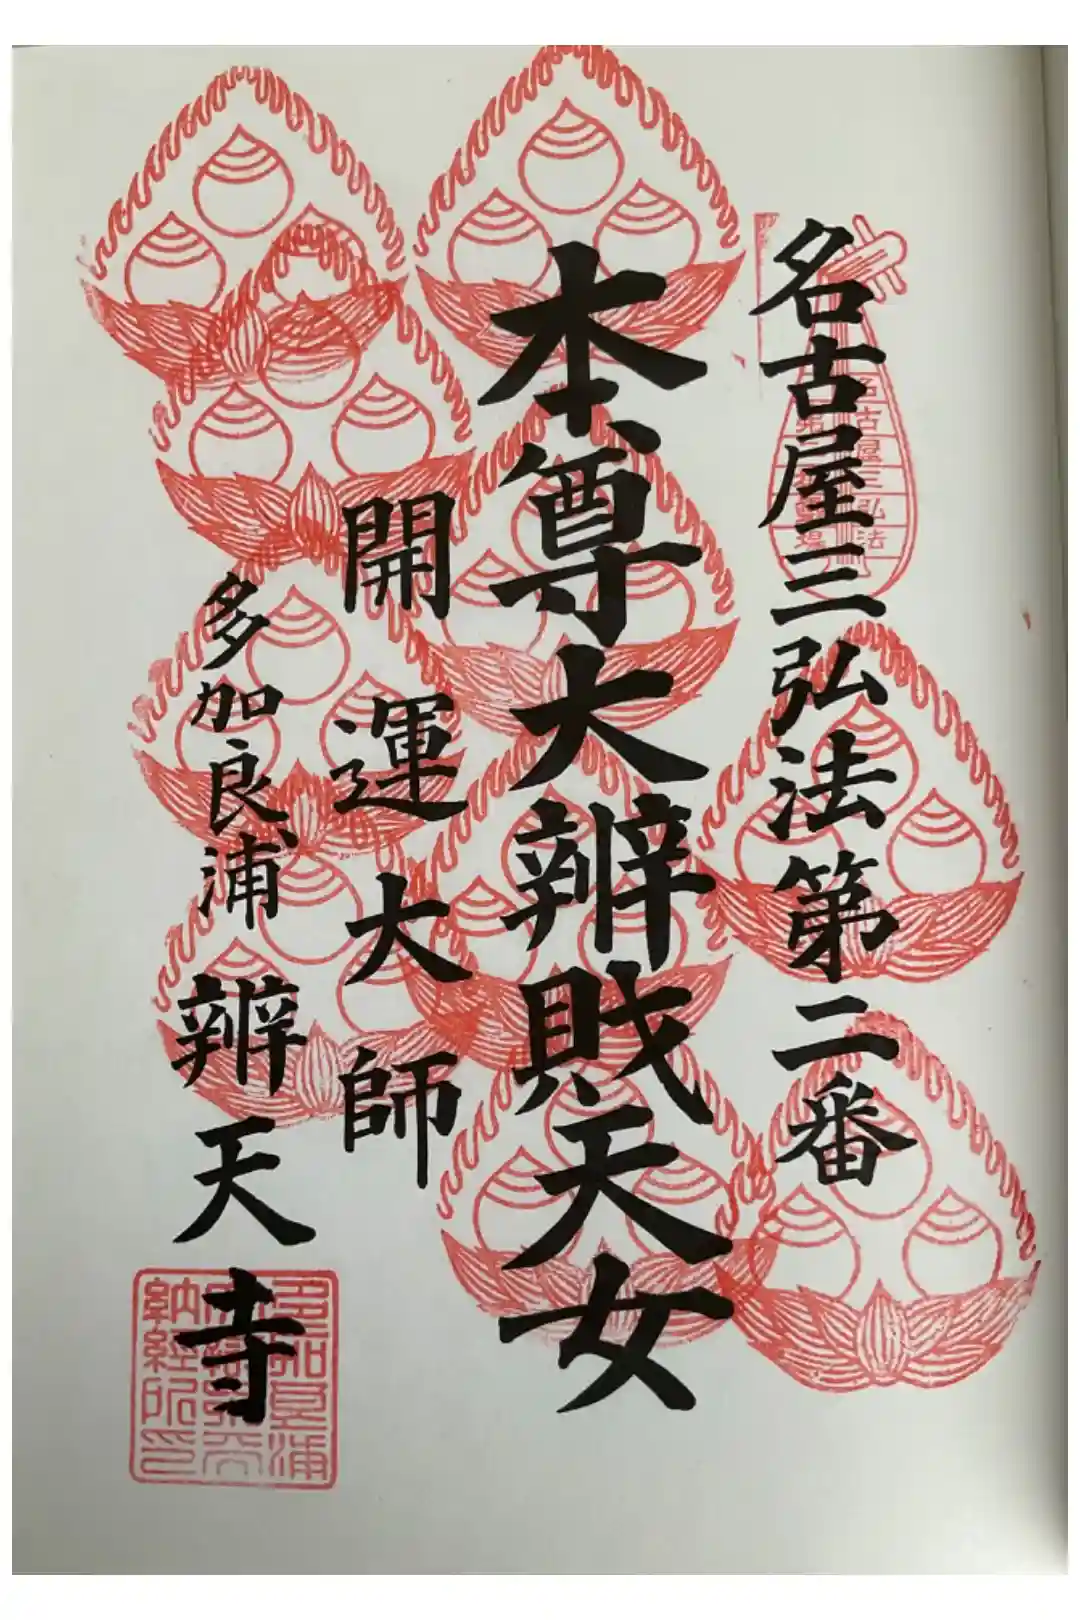 名古屋三弘法第二番
本尊大辨財天女
開運大師
多加良浦辨天寺
名古屋三弘法
納経所印